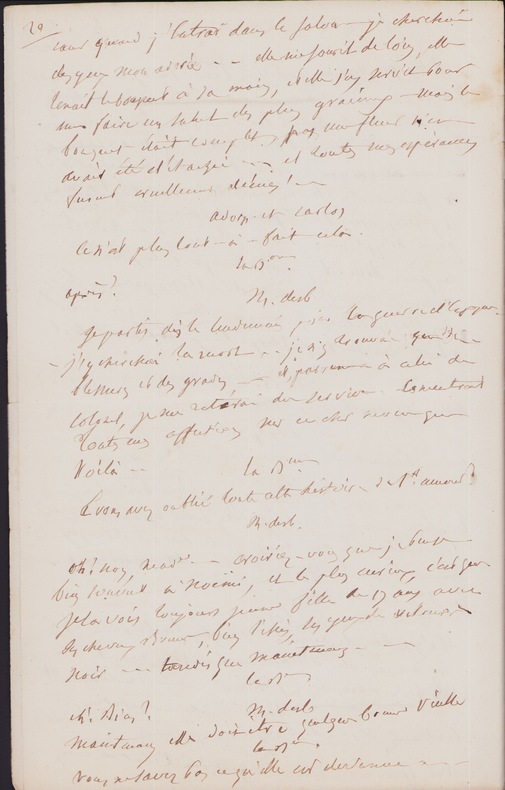 29
cœur quand j'entrai dans le salon je cherchai
des yeux mon adorée -- elle me sourit de loin, elle
tenait le bouquet à la main, et elle s'en servit pour
me faire un salut des plus gracieux mais le
bouquet était complet, pas une fleur n'en
avait été dérangée --- et toutes mes espérances
furent cruellement déçues! --
et Carlos
Ce n'est plus tout-à-fait cela.
la Bonne
après?
M. desb
Je partis dès le lendemain pour la guerre
- j'y cherchai la mort -- je n'y trouvai que des
blessures et des grades --- et parvenu à celui de
Colonel, je me retirai du service. Concentrant
toutes mes affections sur ce cher
Voilà --
la Bonne
Et vous avez oublié toute cette histoire de 1er amour?
M. desb.
oh! non, --- croiriez-vous que je pense
bien souvent à Noémi, et le plus curieux, c'est que
je la vois toujours jeune fille de 17 ans avec
des cheveux bien lissés, les yeux de velours
noir --- tandis que maintenant ---
la Bonne
eh! bien?
M. desb
maintenant elle doit être quelque bonne vieille
la Bonne
vous ne savez pas ce qu'elle est devenue ---